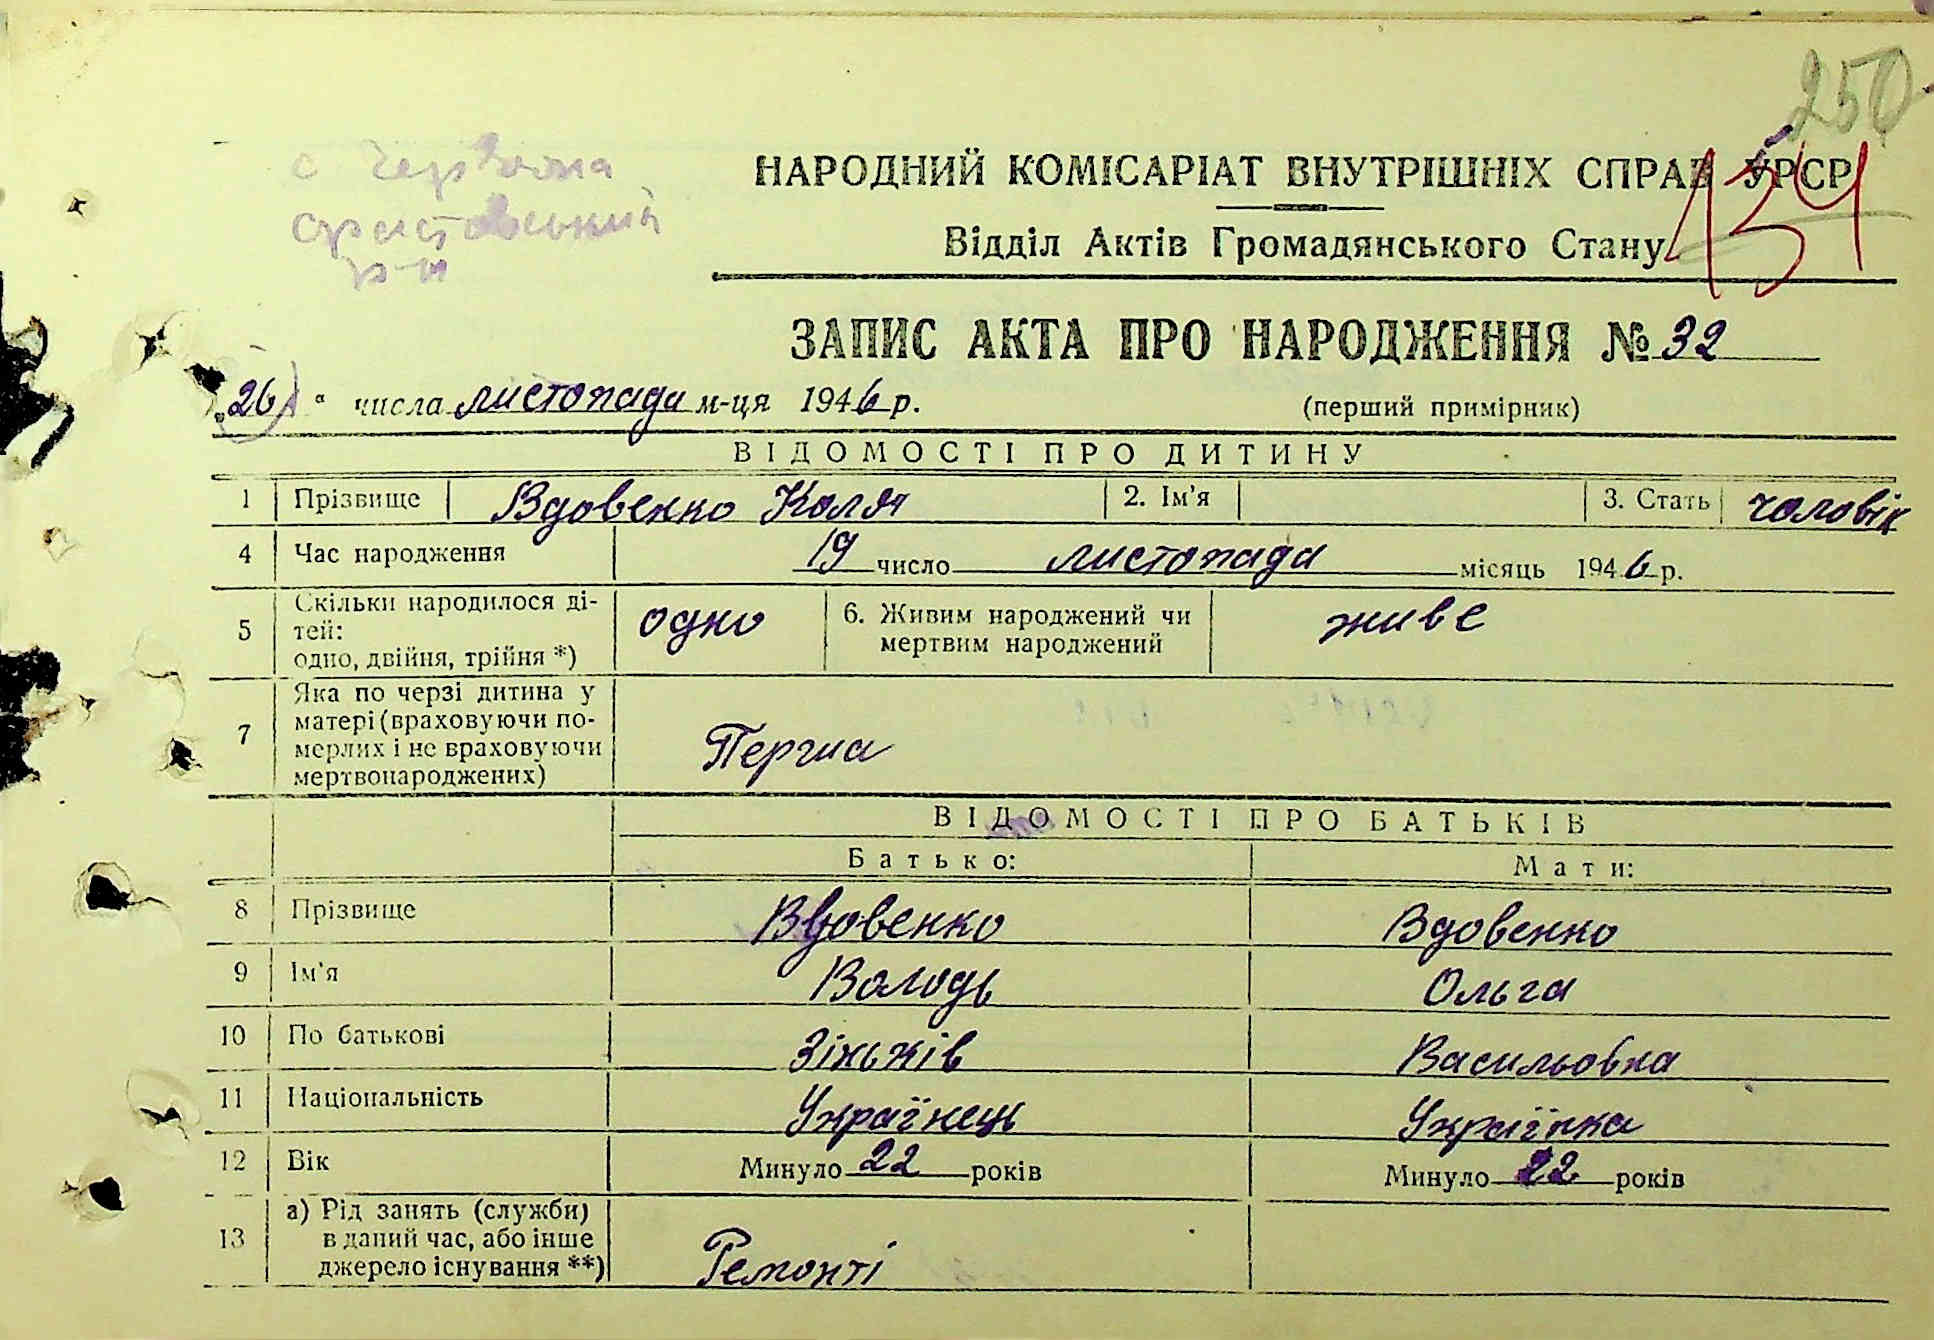 250
НАРОДНИЙ КОМІСАРІАТ ВНУТРІШНІХ СПРАВ УРСР
Відділ Актів Громадянського Стану
ЗАПИС АКТА ПРО НАРОДЖЕННЯ № 32
„26" числа листопада м-ця 1946 р.
(перший примірник)
ВІДОМОСТІ ПРО ДИТИНУ
1 Прізвище Вдовенко Коля 2. Ім'я 3. Стать чоловік
4 Час народження 19 число листопада місяць 1946 р.
5 Скільки народилося ді-
тей:
одно, двійня, трійня *) одно 6. Живим народжений чи
мертвим народжений живе
7 Яка по черзі дитина у
матері (враховуючи по-
мерлих і не враховуючи
мертвонароджених) Перша
ВІДОМОСТІ ПРО БАТЬКІВ
Батько: Мати:
8 Прізвище Вдовенко Вдовенко
9 Ім'я Володь Ольга
10 По батькові Зіньків Васильовна
11 Національність Українець Українка
12 Вік Минуло 22 років Минуло 22 років
13 а) Рід занять (служби)
в даний час, або інше
джерело існування **) Ремонті